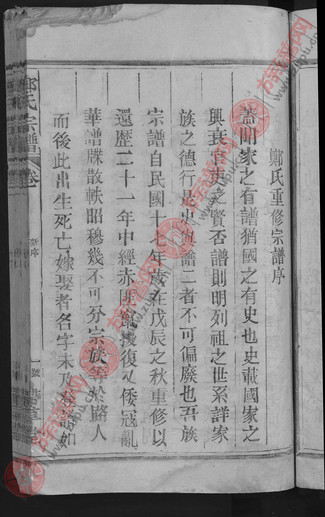 鄭氏重修宗譜序
蓋聞家之有譜猶國之有史也史載國家之
興衰官吏之賢否譜則明列祖之世系詳家
族之德行是史與譜二者不可偏廢也吾族
宗譜自民國十七年歲在戊辰之秋重修以
還歷二十一年中經赤匪竊擾復又倭寇亂
華譜牒散軼昭穆幾不可分宗族等於路人
而後此出生死亡嫁娶者名字未及登譜如
鄭氏宗譜
卷
新序
一
族譜网
www.zupu.cn